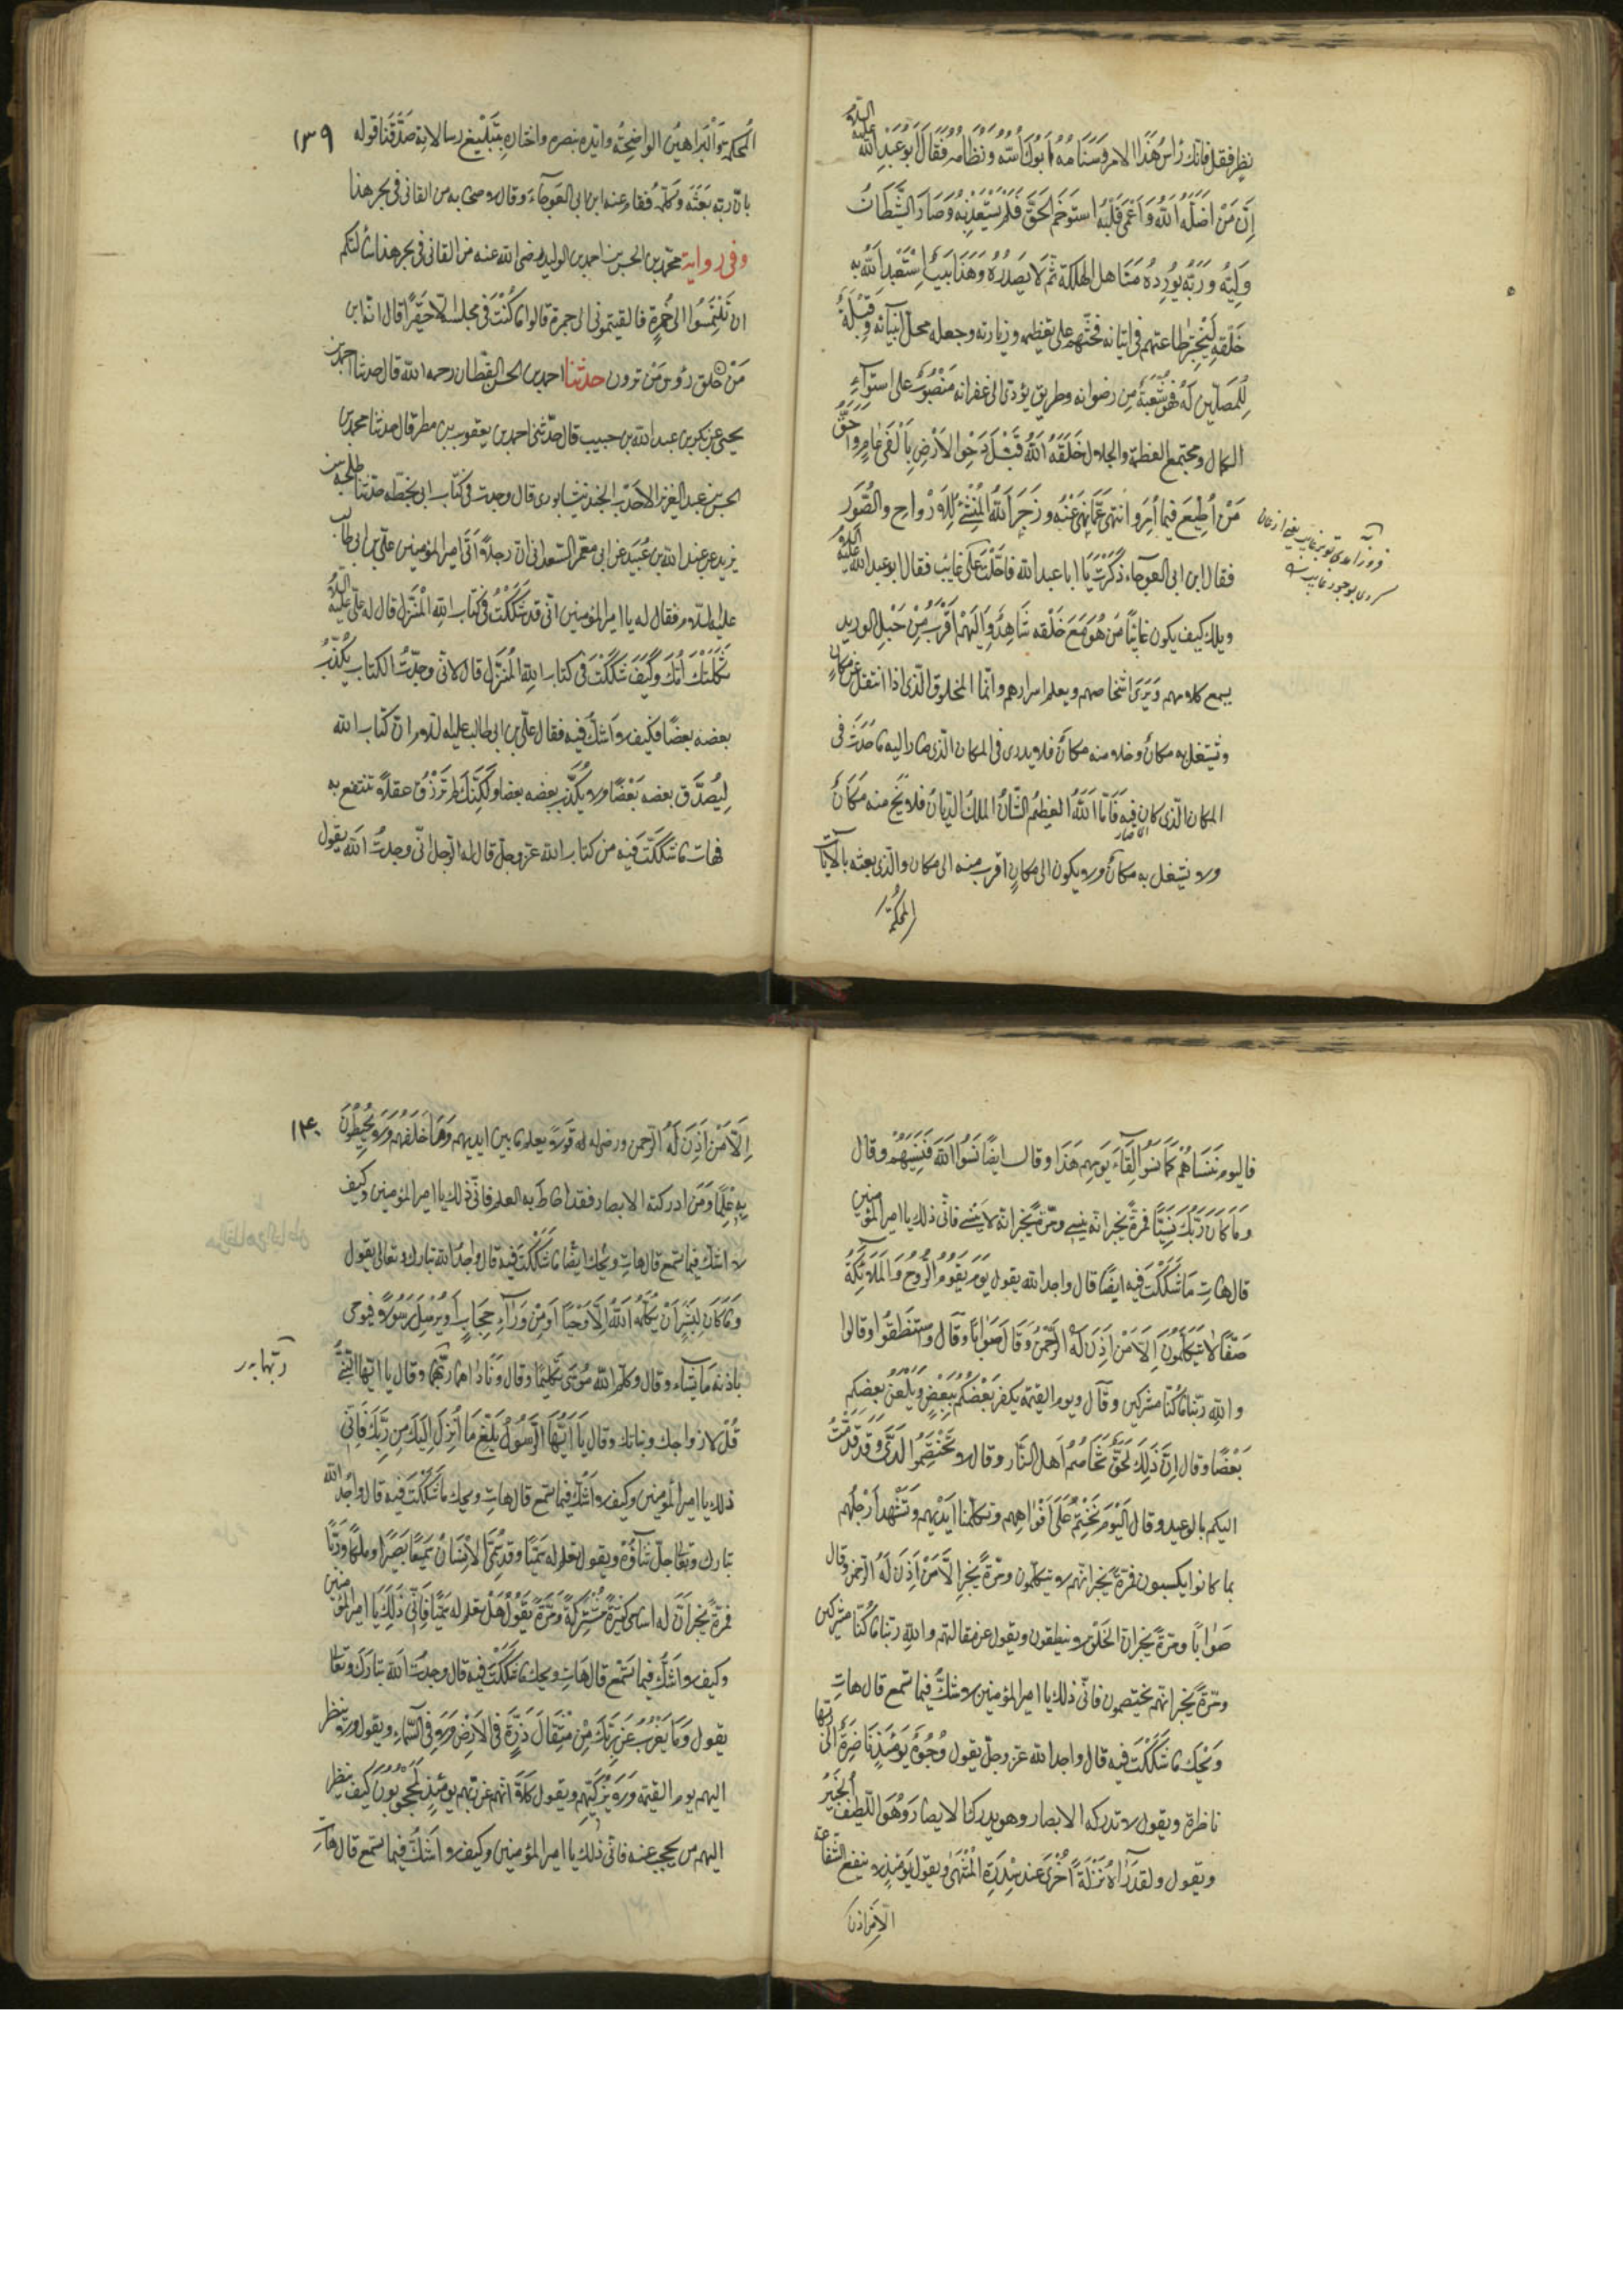 نظر فقل فانك رَأسُ هٰذَا الامر وَسَنَامُهُ وَ اَبُوكَ اُسّه وَنظامه فَقَالَ اَبُوعَبدِالله عليه السّلام
اِنَّ مَنْ اَضَلَّهُ اللهُ وَ اَعْمىٰ قَلْبَهُ استَوخَمَ الحَقَّ فَلَمْ يَسْتَعْذِبْهُ وَصَارَ الشَّيْطَانُ
وَلِيَّهُ وَرَبَّهُ يُورِدُهُ مَنَاهل الهلكة ثُمَّ لا يَصْدُرُهُ وَهَذَا بَيتٌ اِسْتَعْبَدَ اللهُ به
خَلْقَهِ لِيَخْتَبِرَ طاعتهم فى اتيانه فَحَثَّهُم على تعظيمه وزيارته وجعله محلّ انبيائه وَقِبْلَةً
لِلمُصَلّين لَهُ فَهُو شُعْبَةٌ مِن رضوانه وطريق يؤدّى الى غفرانه مَنْصُوبٌ على استواءِ
الكمال ومجتمع العظمة والجلال خَلَقَهُ اللهُ قَبْلَ دَحْوِ الاَرْضِ بِاَلْفَىْ عامٍ وَاَحَقُّ
مَنْ اُطِيعَ فيما اَمَرَ وانتهى عَمّا نهى عَنْهُ وزَجَرَ اللهُ المُنْشِئُ لِلاَرْواحِ والصُّوَر
فقال ابن ابى العوجاء ذَكَرْتَ يَا ابا عبدالله فَاَحَلْتَ عَلى غائبٍ فقال ابوعبدالله عليه السّلام
ويلك كيف يكون غائبًا مَن هُوَ مَعَ خَلْقه شَاهِدٌ وَاِلَيْهِمْ اَقْرَبُ مِنْ حَبْلِ الوريد
يسمع كلامهم وَيَرى اشخاصهم ويعلم اسرارهم وانّما المخلوق الّذى اذا انتقل عن مكانٍ
وتشتغل به مكانٌ وخلا منه مكانٌ فلا يدرى فى المكان الّذى صار اليه ما حَدَثَ فى
المكان الّذى كان فيه فَاَمّا اللهُ العظيمُ الشّانُ الملك الديّانُ فلا يَخْ منه مَكَانٌ
ولا يشتغل به مكانٌ ولا يكون الى مكانٍ اقرب منه الى مكان والّذى بعثه بالآيات
المحكمة
المُحْكَمَةِ وَالْبَراهينُ الواضِحَةُ وايّده بنصره واختارهِ بِتَبْلِيغ رسالاته صَدَّقْنَا قوله
١٣٩
بانّ ربّه بَعَثَه وَكَلَّمَهُ فقام عنه ابن ابى العَوجَآءَ وقال لاصحابه من القانى فى بحر هذا
وفى رواية محمّد بن الحسن بن احمد بن الوليد رضى الله عنه من القانى فى بحر هذا سألتكم
ان تَلْتَمِسُوا الى خُمرَةٍ فالقيتمونى الى جمرة قالوا ما كُنْتَ فى مجلسه الّا حَقِيرًا قال انّه ابن
مَنْ حلق رؤس مَنْ ترون حدثنا احمد بن الحسن القطّان رحمه الله قال حدثنا احمد بن
يحيى عن بكر بن عبدالله بن حبيب قال حدّثنى احمد بن يعقوب بن مطر قال حدثنا محمد بن
الحسن بن عبد العزيز الاَحْدَب الجنديسابورى قال وجدت فى كتاب ابى بخطّه حدّثنا طلحة بن
يزيد عن عبيد الله بن عُبَيد عن ابى معمر السّعدانى انّ رجلاً اَتَى امير المؤمنين على بن ابى طالب
عليه السّلام فقال له يا امير المؤمنين انّى قد شَكَكْتُ فى كتاب اللهِ المُنْزَل قال له علىّ عليه السّلام
ثَكَلَتْكَ اُمّكَ وَكَيْفَ شَكَكْتَ فى كتاب اللهِ المُنَزَّل قال لانّى وجدّتُ الكتاب يُكَذِّبُ
بعضه بعضًا فكيف لا اشكّ فيه فقال علىّ بن ابى طالب عليه السّلام انّ كتاب الله
لِيُصَدِّق بعضه بَعْضًا ولا يُكَذِّب بعضه بعضا ولَكِنّك لم تُرْزَقْ عقلاً تنتفع به
فهات ما شَكَكْتَ فيه من كتاب الله عزّوجلّ قال له الرّجل انّى وجدتُ الله يقول
فاليوم نَنسَاهُمْ كَمَا نَسُوا لِقَاءَ يَومِهِم هَذَا وقال ايضًا نَسُوا اللهَ فَنَسِيَهُمْ وقال
وَمَا كَانَ رَبُّكَ نَسِيًّا فمرّةً يخبر انّه ينسى ومرّةً يخبر انّه لا يَنْسى فانّى ذلك يا امير المؤمنين
قال هاتِ مَا شَكَكْتَ فيه ايضًا قال واجد الله يقول يَوْمَ يَقُومُ الرُّوحُ وَالمَلَائِكَةُ
صَفًّا لا يَتَكَلَّمُونَ اِلا مَنْ اَذِنَ لَهُ الرَّحْمنُ وَقَالَ صَوابًا وقَالَ واستنطقوا وقالوا
واللهِ ربّنا ما كنّا مشركين وقَالَ ويوم القيمة يكفر بَعْضُكُمْ بِبَعْضٍ وَيَلْعَنُ بَعضُكم
بَعْضًا وقال اِنَّ ذَلِكَ لَحَقٌّ تَخَاصُمُ اَهلِ النَّار وقال لا تَخْتَصِمُوا لَدَىَّ وَقَدْ قَدَّمْتُ
اليكم بالوعيد وقال اَلْيَوْمَ نَخْتِمُ عَلى اَفْواهِهِم وتكلّمنا ايْدِيهم وَتَشْهدُ اَرْجلُهم
بما كانوا يكسبون فمرّةً يخبر انّهم لا يتكلّمون ومرّةً يخبر اِلّا مَنْ اَذِنَ لَهُ الرّحمن وقال
صَوابًا ومرّةً يخبر انّ الخَلْقَ لا ينطقون ويقول عن مقالتهم والله ربّنا ما كُنّا مشركين
ومرّةً يخبر انّهم يختصمون فانّى ذلك يا امير المؤمنين لا شكّ فيما تسمع قال هاتِ
وَيْحَكَ ما شَكَكْتَ فيه قال واجد الله عزّوجلّ يقول وُجُوهٌ يَوْمَئِذٍ نَاضِرَةٌ الى ربّها
ناظرة ويقول لا تدركه الابصار وهو يدرك الابصار وَهُوَ اللّطيف الخَبيرُ
ويقول ولقد رَاهُ نَزْلَةً اُخْرى عند سِدْرَةِ الْمُنْتَهى ويقول يَوْمَئِذٍ لا تنفع الشّفاعة
الّا مَن اذن
اِلّا مَنْ اَذِنَ لَهُ الرّحمن ورضى له قولاً يعلم ما بين ايديهم وَمَا خَلْفَهُم وَلا يُحِيطُونَ
١٤٠
بِهِ عِلْمًا وَمَن ادركته الابصار فقد احاطَ به العلم فانّى ذلك يا امير المؤمنين وكيف
لا اشكّ فيما تسمع قال هاتِ ويْحك ايضًا ما شَكَكْتَ فيه قال واَجِدُ الله تبارك وتعالى يقول
وَمَا كَانَ لِبَشَرٍ اَنْ يُكَلِّمَهُ اللهُ اِلَّا وَحْيًا اَوْ مِنْ وَرَآءِ حِجَابٍ اَو يُرْسِلَ رَسُولاً فيوحى
باذنه مَا يَشَاء وقال وكلّم الله مُوْسَى تَكْلِيمًا وقال وَنَاداهما ربّهُما وقال يا ايّها النّبىُّ
قُلْ لازواجك وبناتك وقال يَا اَيُّهَا الرَّسُولُ بَلّغْ مَا اُنْزِلَ اِلَيْكَ مِن رَبِّكَ فَانّى
ذلك يا امير المؤمنين وكيف لا اَشُكّ فيما تسمع قال هاتِ ويحك ما شَكَكْتَ فيه قال واَجِدُ الله
تبارك وتعالى جلّ ثناؤُهُ ويقول هل تعلم له سَمِيًّا وقد سُمِّىَ الاِنْسَانُ سَمِيعًا بَصيرًا وملكًا وَرَبًّا
فمرّةً يخبر اَنَّ له اسامى كَثِيرَةً مُشْتَرِكَةً وَمَرَّةً يَقُولُ هَلْ تعلم له سَمِيًّا فَاَنّى ذَلِكَ يَا امير المؤمنين
وكيف لا اَشُكُّ فيما تَسْمَع قال هَاتِ ويحك ما شَكَكْتَ فيه قال وجدتُ اللهَ تَبَارَكَ وتعالى
يقول وَمَا يَعْزُبُ عَن رَبِّكَ مِنْ مِثْقَالَ ذَرَّةٍ فى الاَرْضِ وَلا فى السّماء ويقول ولا ينظر
اليهم يوم القيمة وَلا يُزَكِّيهِم ويقول كَلّا انّهم عَن رَبّهم يومَئِذٍ لَمَحْجُوبُونَ كيف ينظر
اليهم من يحجب عنه فانّى ذلك يا امير المؤمنين وكيف لا اشكُّ فيما تسمع قال هاتِ